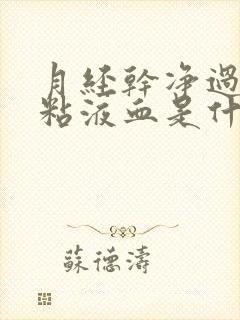 月經幹淨過
粘液血是什
蘇德濤